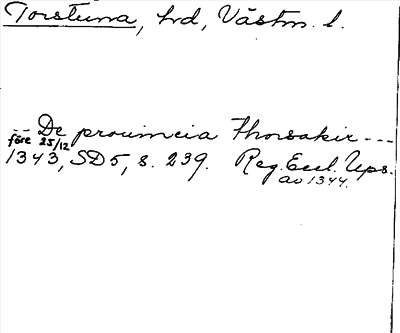 Torstuna, hd, Västm. l.
-- De prouincia Thorsakir ---
före 25/12
1343, SD5, s. 239. Reg. Eccl. Ups.
av 1344.